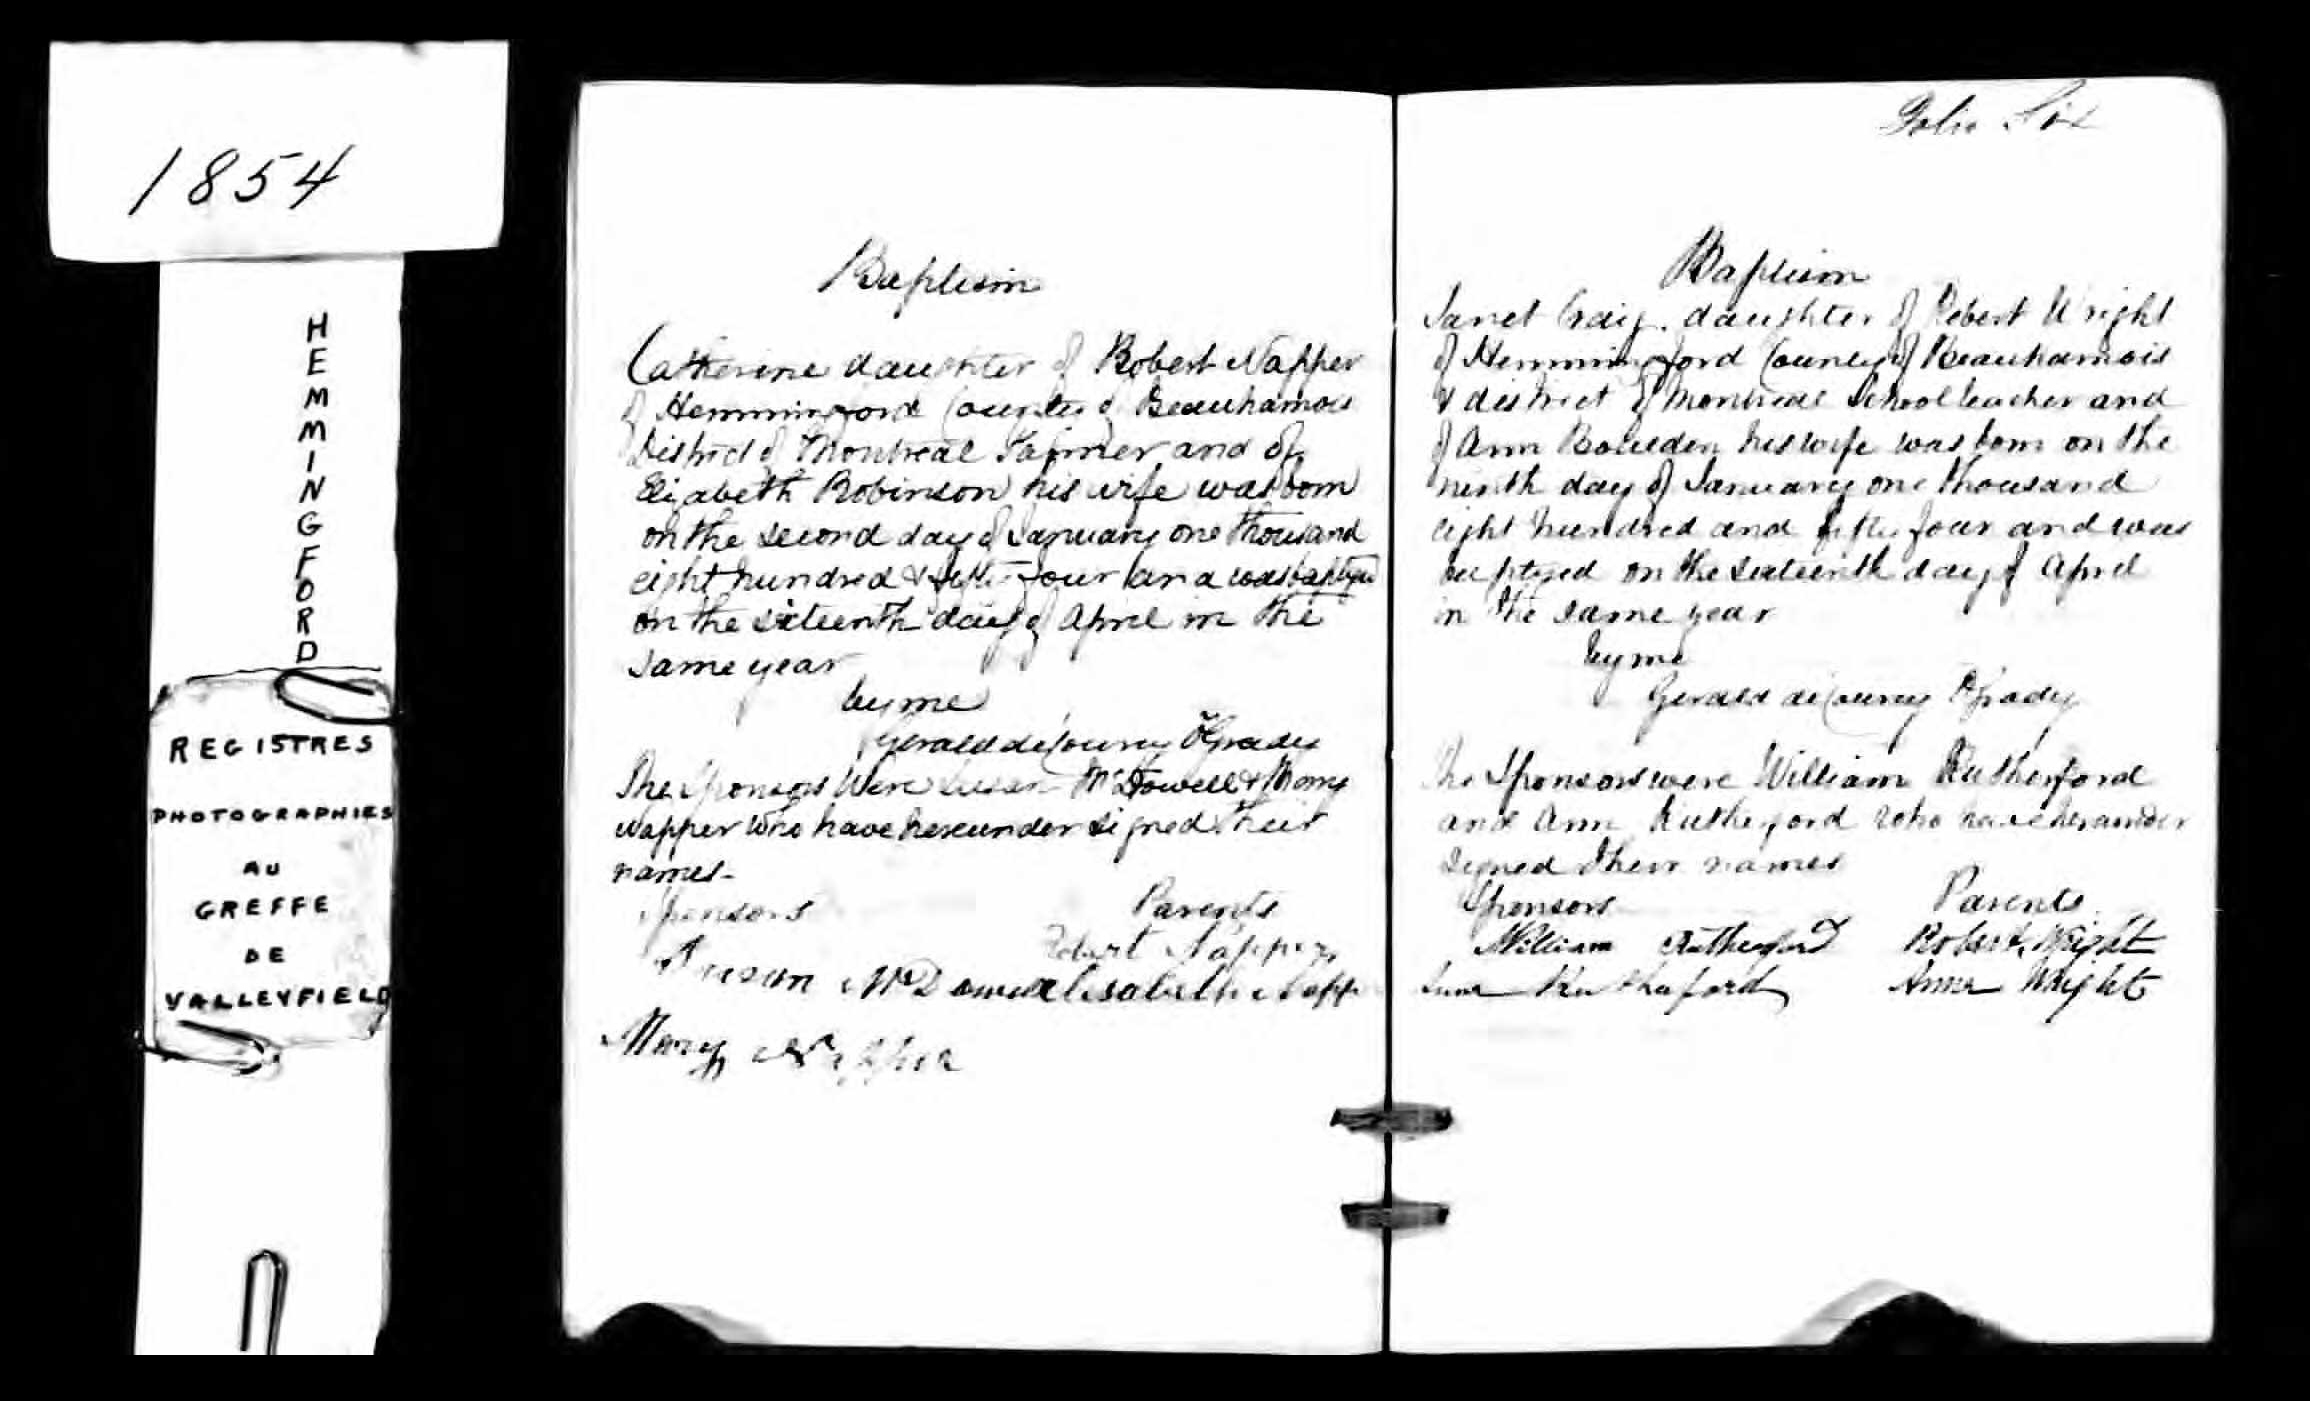 1854
HEMMINGFORD
REGISTRES
PHOTOGRAPHIES
AU
GREFFE
DE
VALLEYFIELD
Baptism
Catherine daughter of Robert Napper
of Hemmingford County of Beauharnois
District of Montreal Farmer and of
Elizabeth Robinson his wife was born
on the second day of January one thousand
eight hundred & fifty four and was baptized
on the sixteenth day of April in the
same year
by me
Gerald de Courcy O'Grady
The Sponsors Were Susan McDowell & Mary
Napper who have hereunder signed their
names-
Sponsors Parents
Robert Napper
Susan McDowell Elisabeth Napp
Mary Napper
Folio Six
Baptism
Janet Craig. daughter of Robert Wright
of Hemmingford County of Beauharnois
& district of Montreal School teacher and
of Ann his wife was born on the
ninth day of January one thousand
eight hundred and fifty four and was
baptized on the sixteenth day of April
in the same year
by me
Gerald de Courcy O'Grady
The Sponsors were William Rutherford
and Ann Rutherford who have hereunder
signed their names
Sponsors Parents.
William Rutherford Robert Wright
Rutherford Anne Wright